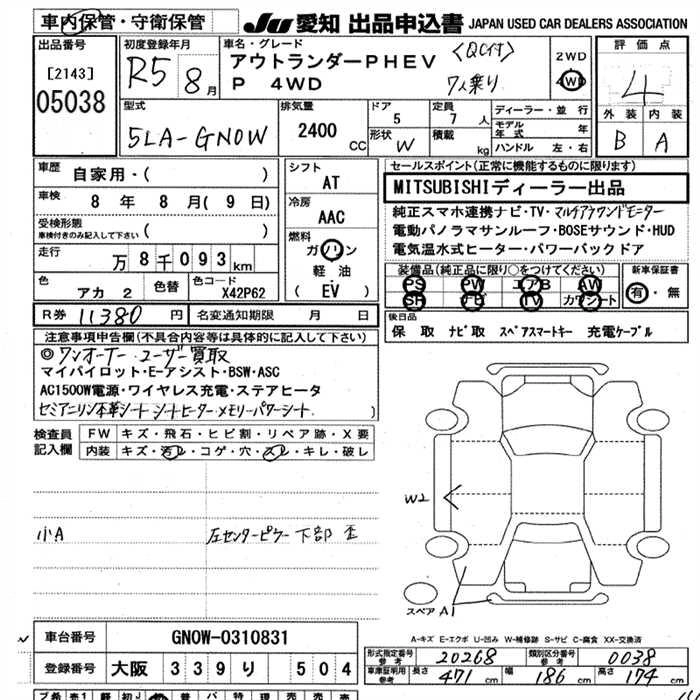 車内保管・守衛保管
JU 愛知 出品申込書 JAPAN USED CAR DEALERS ASSOCIATION
出品番号
[2143]
05038
初度登録年月
R5 8月
車名・グレード
アウトランダーPHEV <QC付>
P 4WD 7人乗り
2WD
4WD
評価点
4
外装 内装
B A
型式
5LA-GN0W
排気量
2400 CC
ドア
5
形状
W
定員
7 人
積載
kg
ディーラー・並行
モデル年式 年
ハンドル 左・右
車歴
自家用・( )
車検
8年 8月(9日)
受検形態
車検付きのみ記入して下さい ( )
走行
万8千093km
色
アカ 2
色替
色コード
X42P62
シフト
AT
冷房
AAC
燃料
ガソリン
軽油
(EV)
セールスポイント(正常に機能するものに限ります)
MITSUBISHIディーラー出品
純正スマホ連携ナビ・TV・マルチアラウンドモニター
電動パノラマサンルーフ・BOSEサウンド・HUD
電気温水式ヒーター・パワーバックドア
装備品(純正品に限り○をつけてください)
PS PW エアB AW
SR ナビ TV カワシート
新車保証書
有・無
R券 11380 円
名変通知期限 月 日
後日品
保 取 ナビ取 スペアスマートキー 充電ケーブル
注意事項申告欄(不具合内容等は具体的に記入して下さい)
◎ワンオーナー ユーザー買取
マイパイロット・E-アシスト・BSW・ASC
AC1500W電源・ワイヤレス充電・ステアヒータ
セミアニリン本革シート シートヒーター メモリーパワーシート )
検査員記入欄
FW キズ・飛石・ヒビ割・リペア跡・X要
内装 キズ・汚レ・コゲ・穴・スレ・キレ・破レ
小A
左センターピラー下部 歪
W2
スペア A1
A-キズ E-エクボ U-凹み W-補修跡 S-サビ C-腐食 XX-交換済
車台番号 GN0W-0310831
登録番号 大阪 339 り 504
形式指定番号 参考 20268
類別区分番号 参考 0038
車庫証明用 参考 長さ 471 cm 幅 186 cm 高さ 174 cm